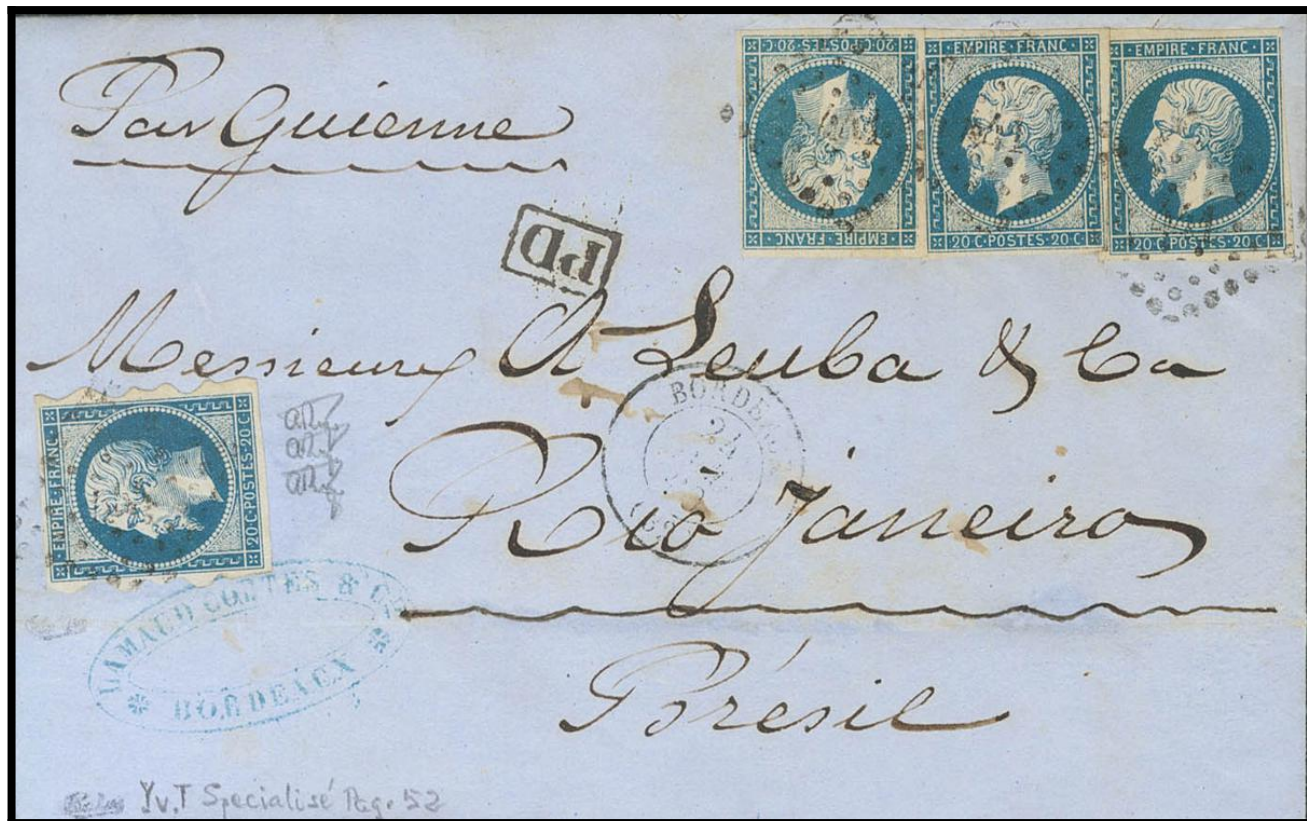 Par Guienne
20 C·POSTES·20 C
EMPIRE·FRANC·
EMPIRE·FRANC·
20 C·POSTES·20 C
EMPIRE·FRANC·
20 C·POSTES·20 C
PD
Messieurs A Leuba & Co
BORDEAUX
24
Rio Janeiro
EMPIRE·FRANC·
20 C·POSTES·20 C
CORTES & Cie
BORDEAUX
Brésil
Yv.T Specialisé Pag. 52